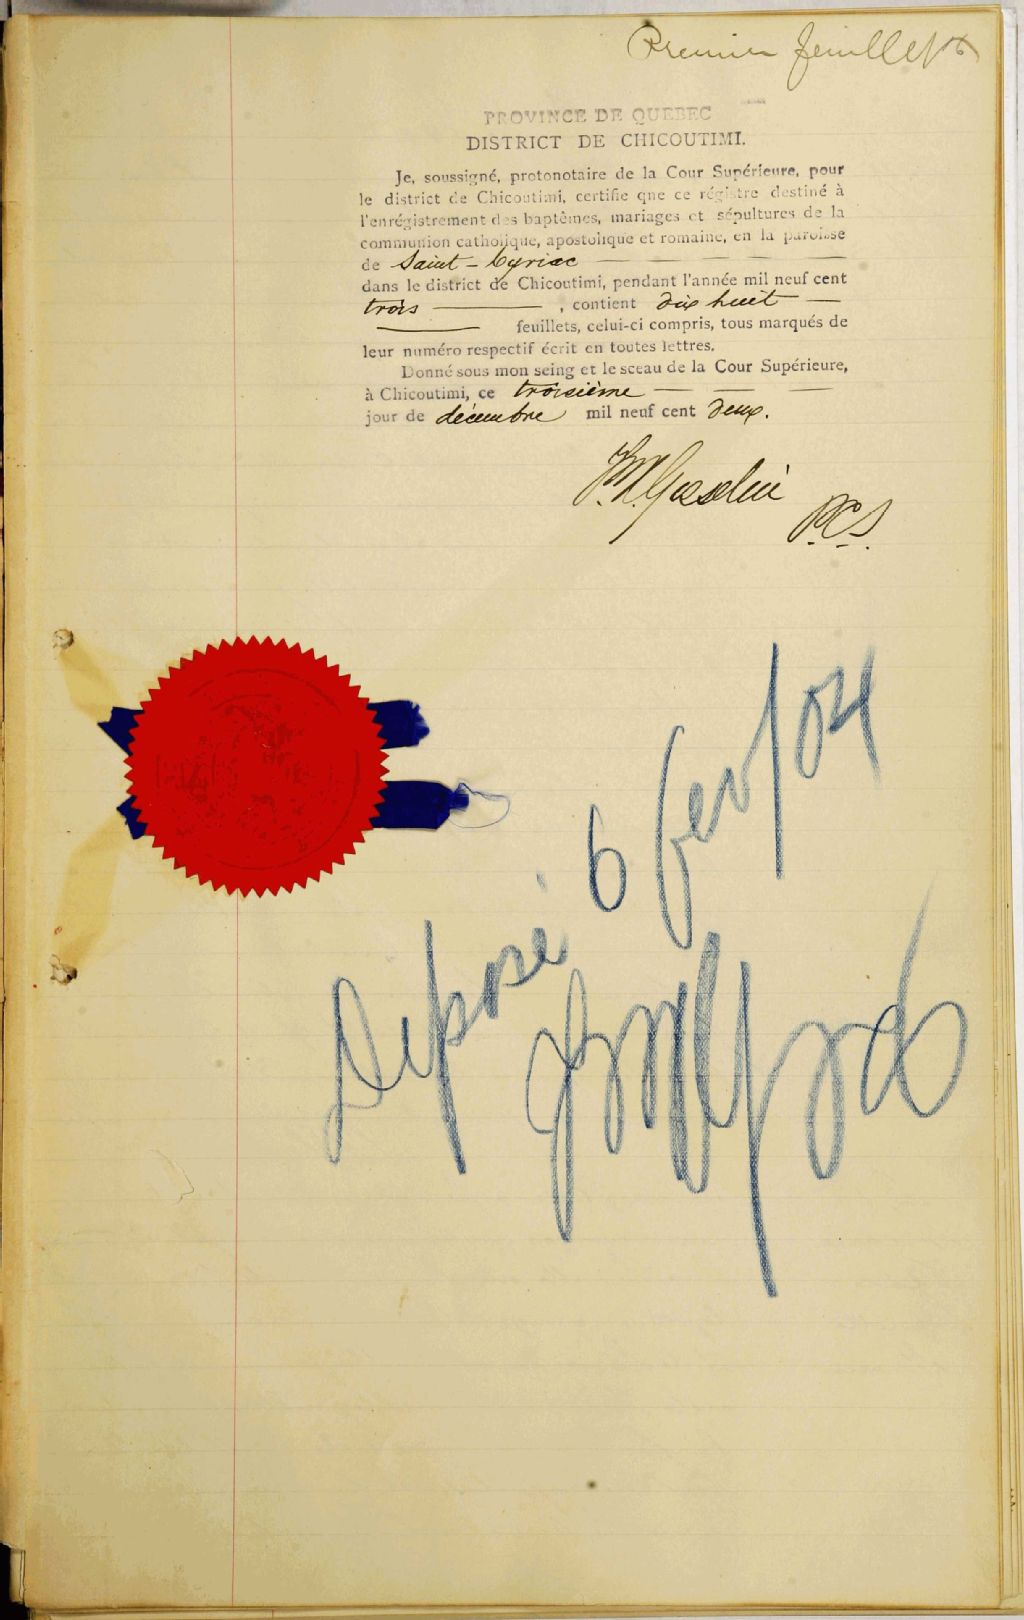 Premier feuillet
PROVINCE DE QUEBEC
DISTRICT DE CHICOUTIMI.
Je, soussigné, protonotaire de la Cour Supérieure, pour
le district de Chicoutimi, certifie que ce régistre destiné à
l'enrégistrement des baptêmes, mariages et sépultures de la
communion catholique, apostolique et romaine, en la paroisse
de Saint-Cyriac
dans le district de Chicoutimi, pendant l'année mil neuf cent
trois, contient dix huit
feuillets, celui-ci compris, tous marqués de
leur numéro respectif écrit en toutes lettres.
Donné sous mon seing et le sceau de la Cour Supérieure,
à Chicoutimi, ce troisième
jour de décembre mil neuf cent deux.
Gosselin
P.C.S.
Déposé 6 fev/04